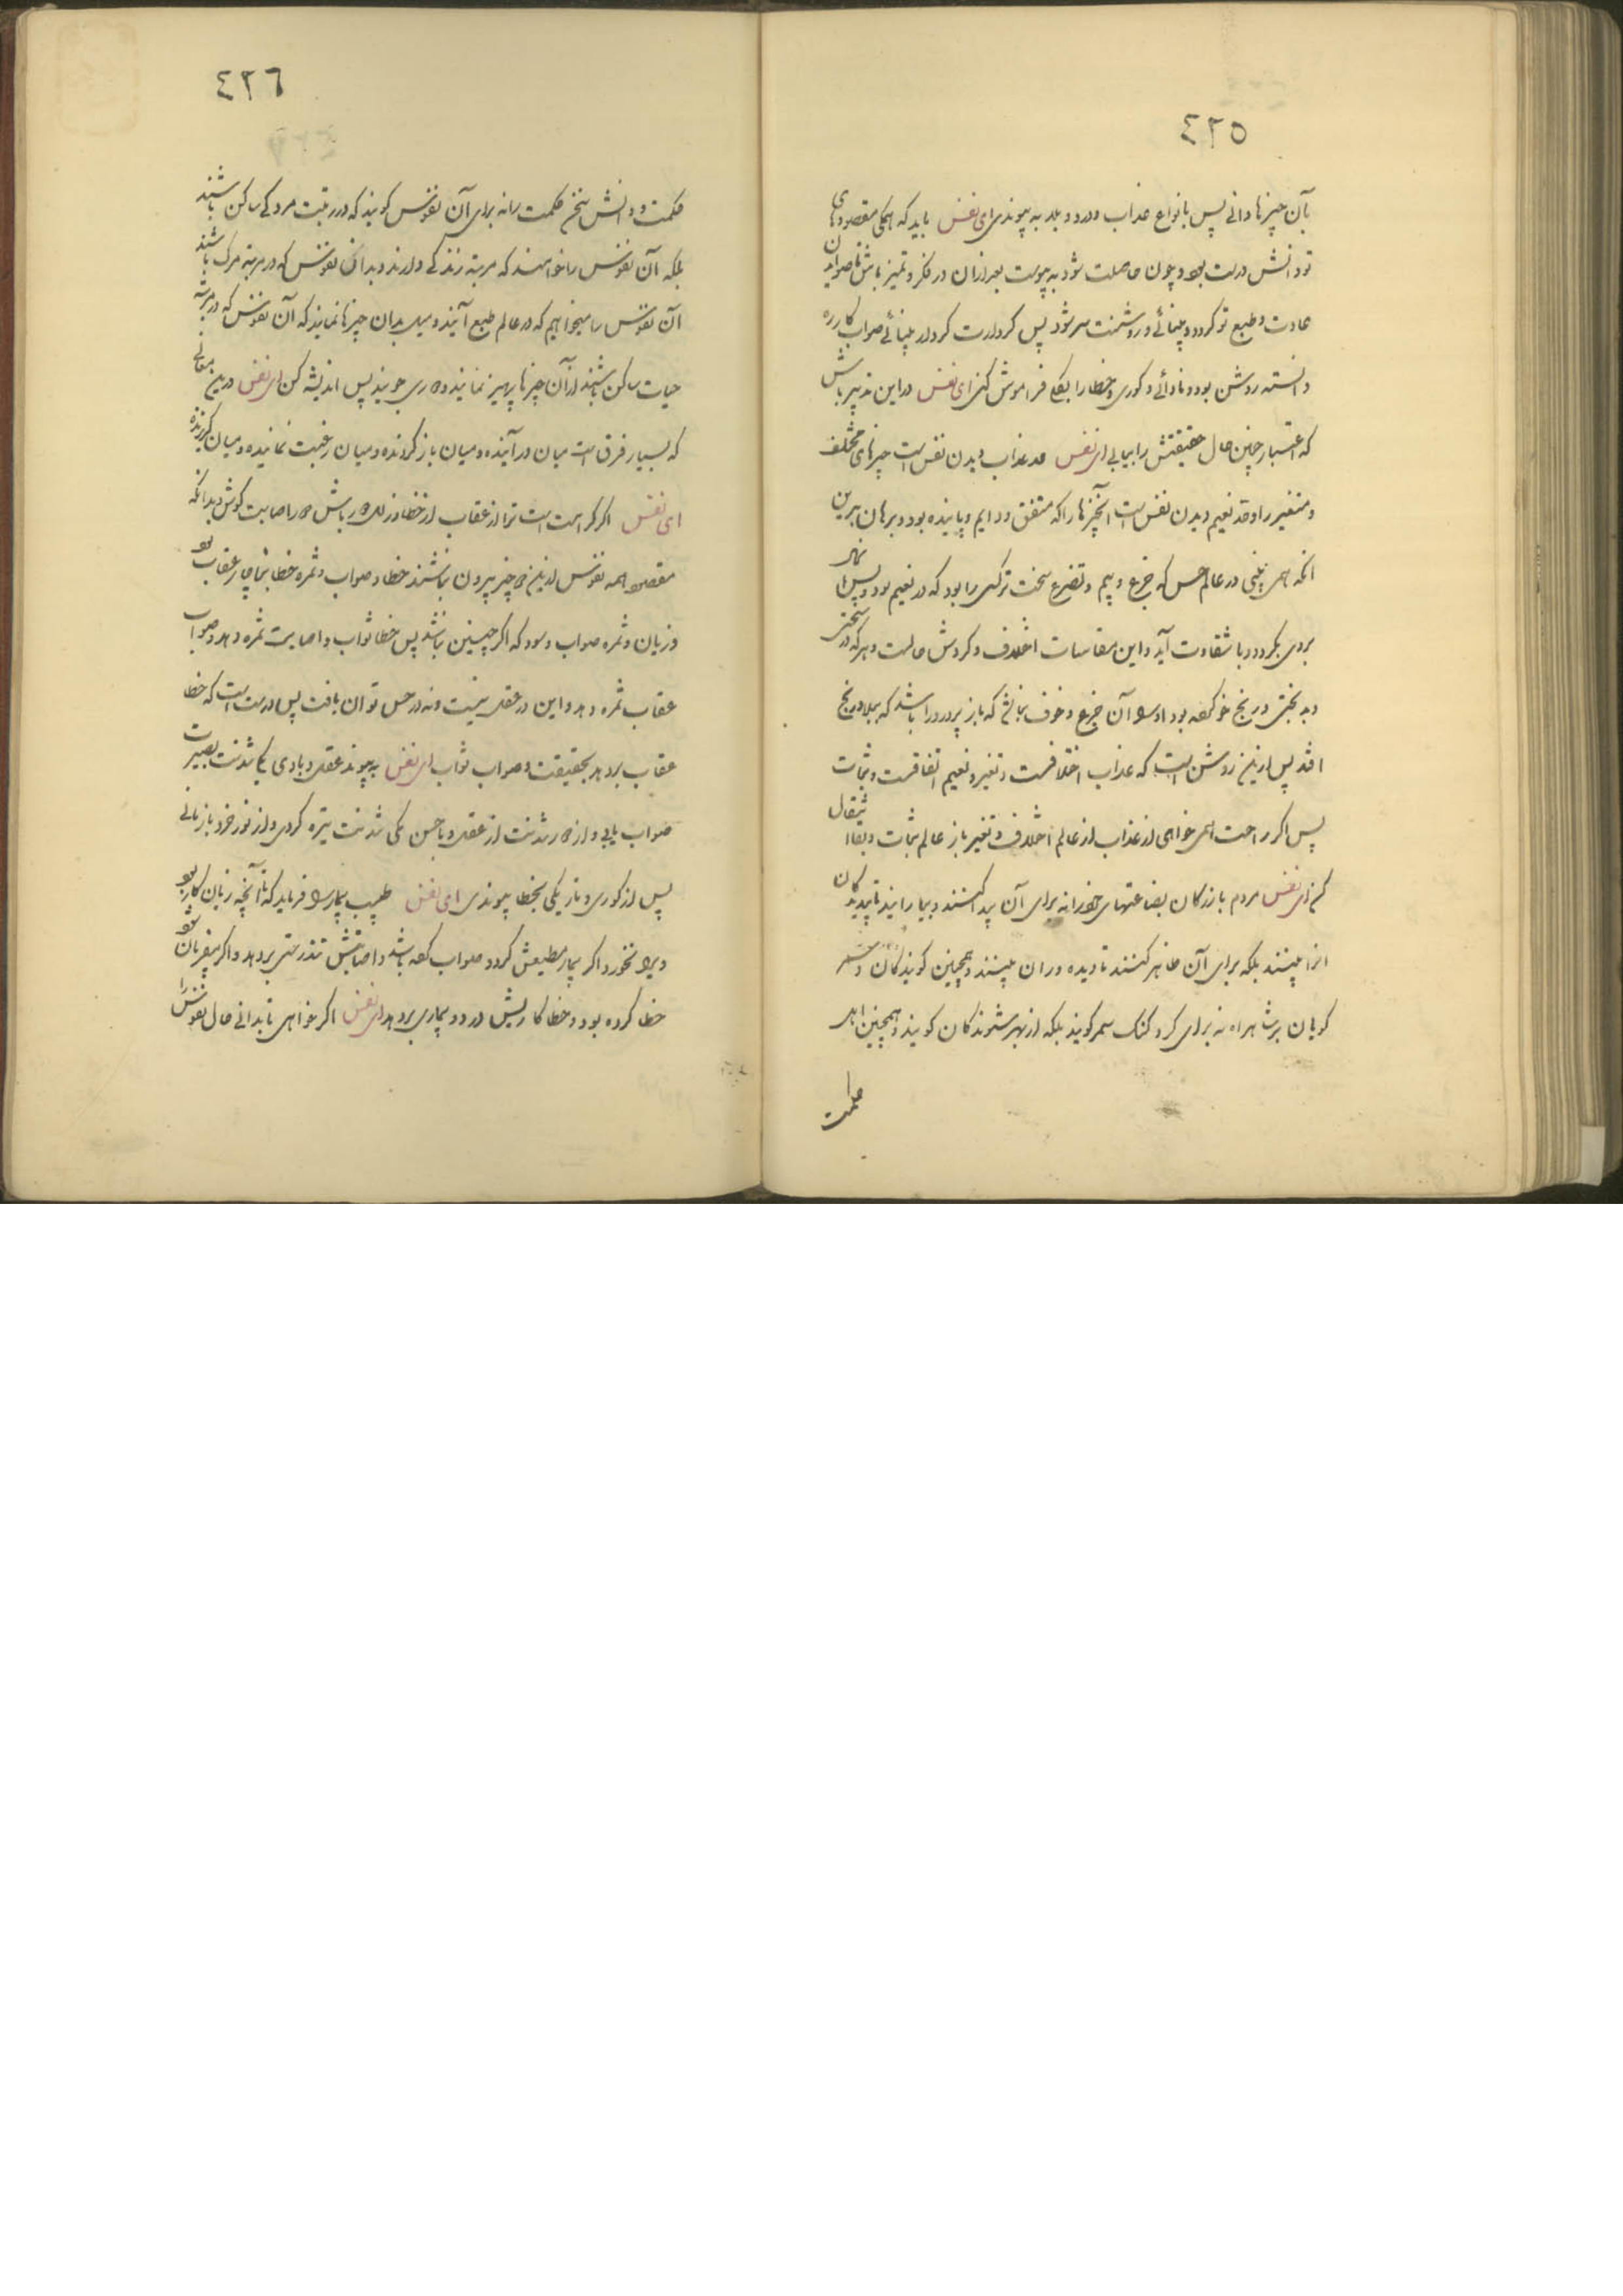 ٤٢٥
بآن چیزها دانی پس بانواع عذاب و درد و بلا به پیوندی ای نفس باید که همگی مقصودهای
تو دانش درست بود و چون حاصلت شود به پیوست بعد از آن در فکر و تمیز باش تا صواب
عادت و طبع تو گردد و بینائی و روشنیت شود پس کردارت کردار بینائی صواب کار ره
دانسته روشن بود و نادانی و کوری و خطا را بکل فراموش کن ای نفس در این تدبیر باش
که اعتبار چنین حال حقیقتش را بیابی ای نفس حد عذاب دیدن نفس است چیزهای مختلف
و متغیر را و حد نعیم دیدن نفس است آنچیزها را که متفق و دایم و پاینده بود و برهان برین
آنکه همی بینی در عالم حس که جزع و بیم و تضرع سخت تر کسی را بود که در نعیم بود و پس
بروی بگردد و با شقاوت آید و این مقاسات اختلاف و گردش حالست و هر که در سختی
و بدبختی و رنج خو کرده بود او را آن جزع و خوف نباشد که باز پرورد را باشد که ببلا و رنج
افتد پس ازین روشن است که عذاب اختلافست و تغیر و نعیم اتفاقست و ثبات
پس اگر راحت همی خواهی از عذاب از عالم اختلاف و تغیر باز عالم ثبات و بقا انتقال
کن ای نفس مردم بازرگان بضاعتهای خود را نه برای آن پیدا کنند و بیارایند تا
آنرا بینند بلکه برای آن ظاهر کنند تا دیده وران بینند و همچنین گویندگان و سمر
گویان بر شاهراه نه برای کر و گنگ سمر گویند بلکه از بهر شنوندگان گویند و همچنین اهل
حکمت
٤٢٦
حکمت و دانش سخن حکمت را نه برای آن نفوس گویند که در رتبت مردگی ساکن باشند
بلکه آن نفوس را خواهند که مرتبه زندگی دارند و بدان نفوس که در مرتبه مرگ باشند
آن نفوس را میخواهیم که در عالم طبع آیند و میل بدان چیزها نمایند که آن نفوس که در مرتبه
حیات ساکن باشند از آن چیزها پرهیز نمایند و دوری جویند پس اندیشه کن ای نفس درین معانی
که بسیار فرق است میان در آینده و میان بازگردنده و میان رغبت نماینده و میان گریزنده
ای نفس اگر کراهت است ترا از عقاب از خطا و زلل دور باش و با صابت کوش و بدانکه
مقصود همه نفوس ازین دو چیز بیرون نباشند خطا و صواب و ثمره خطا بناچار عقاب بود
و زیان و ثمره صواب و سود که اگر چنین نباشد پس خطا ثواب و اصابت ثمره دهد و صواب
عقاب ثمره دهد و این در عقل نیست و نه در حس توان یافت پس درست است که خطا
عقاب بر دهد بحقیقت و صواب ثواب ای نفس به پیوند عقل و با وی یکی شدنت بصیرت
صواب یابی و از دور شدنت از عقل و با حس یکی شدنت تیره گردی و از نور خرد باز مانی
پس از کوری و تاریکی بخطا پیوندی ای نفس طبیب بیمار را فرماید که تا آنچه زیان کار بود
ویرا نخورد اگر بیمار مطیعش گردد صواب کرده باشد و اصابتش تندرستی بر دهد و اگر بیفرمان شود
خطا کرده بود و خطا کاریش درد و بیماری بر دهد ای نفس اگر خواهی تا بدانی حال نفوس را